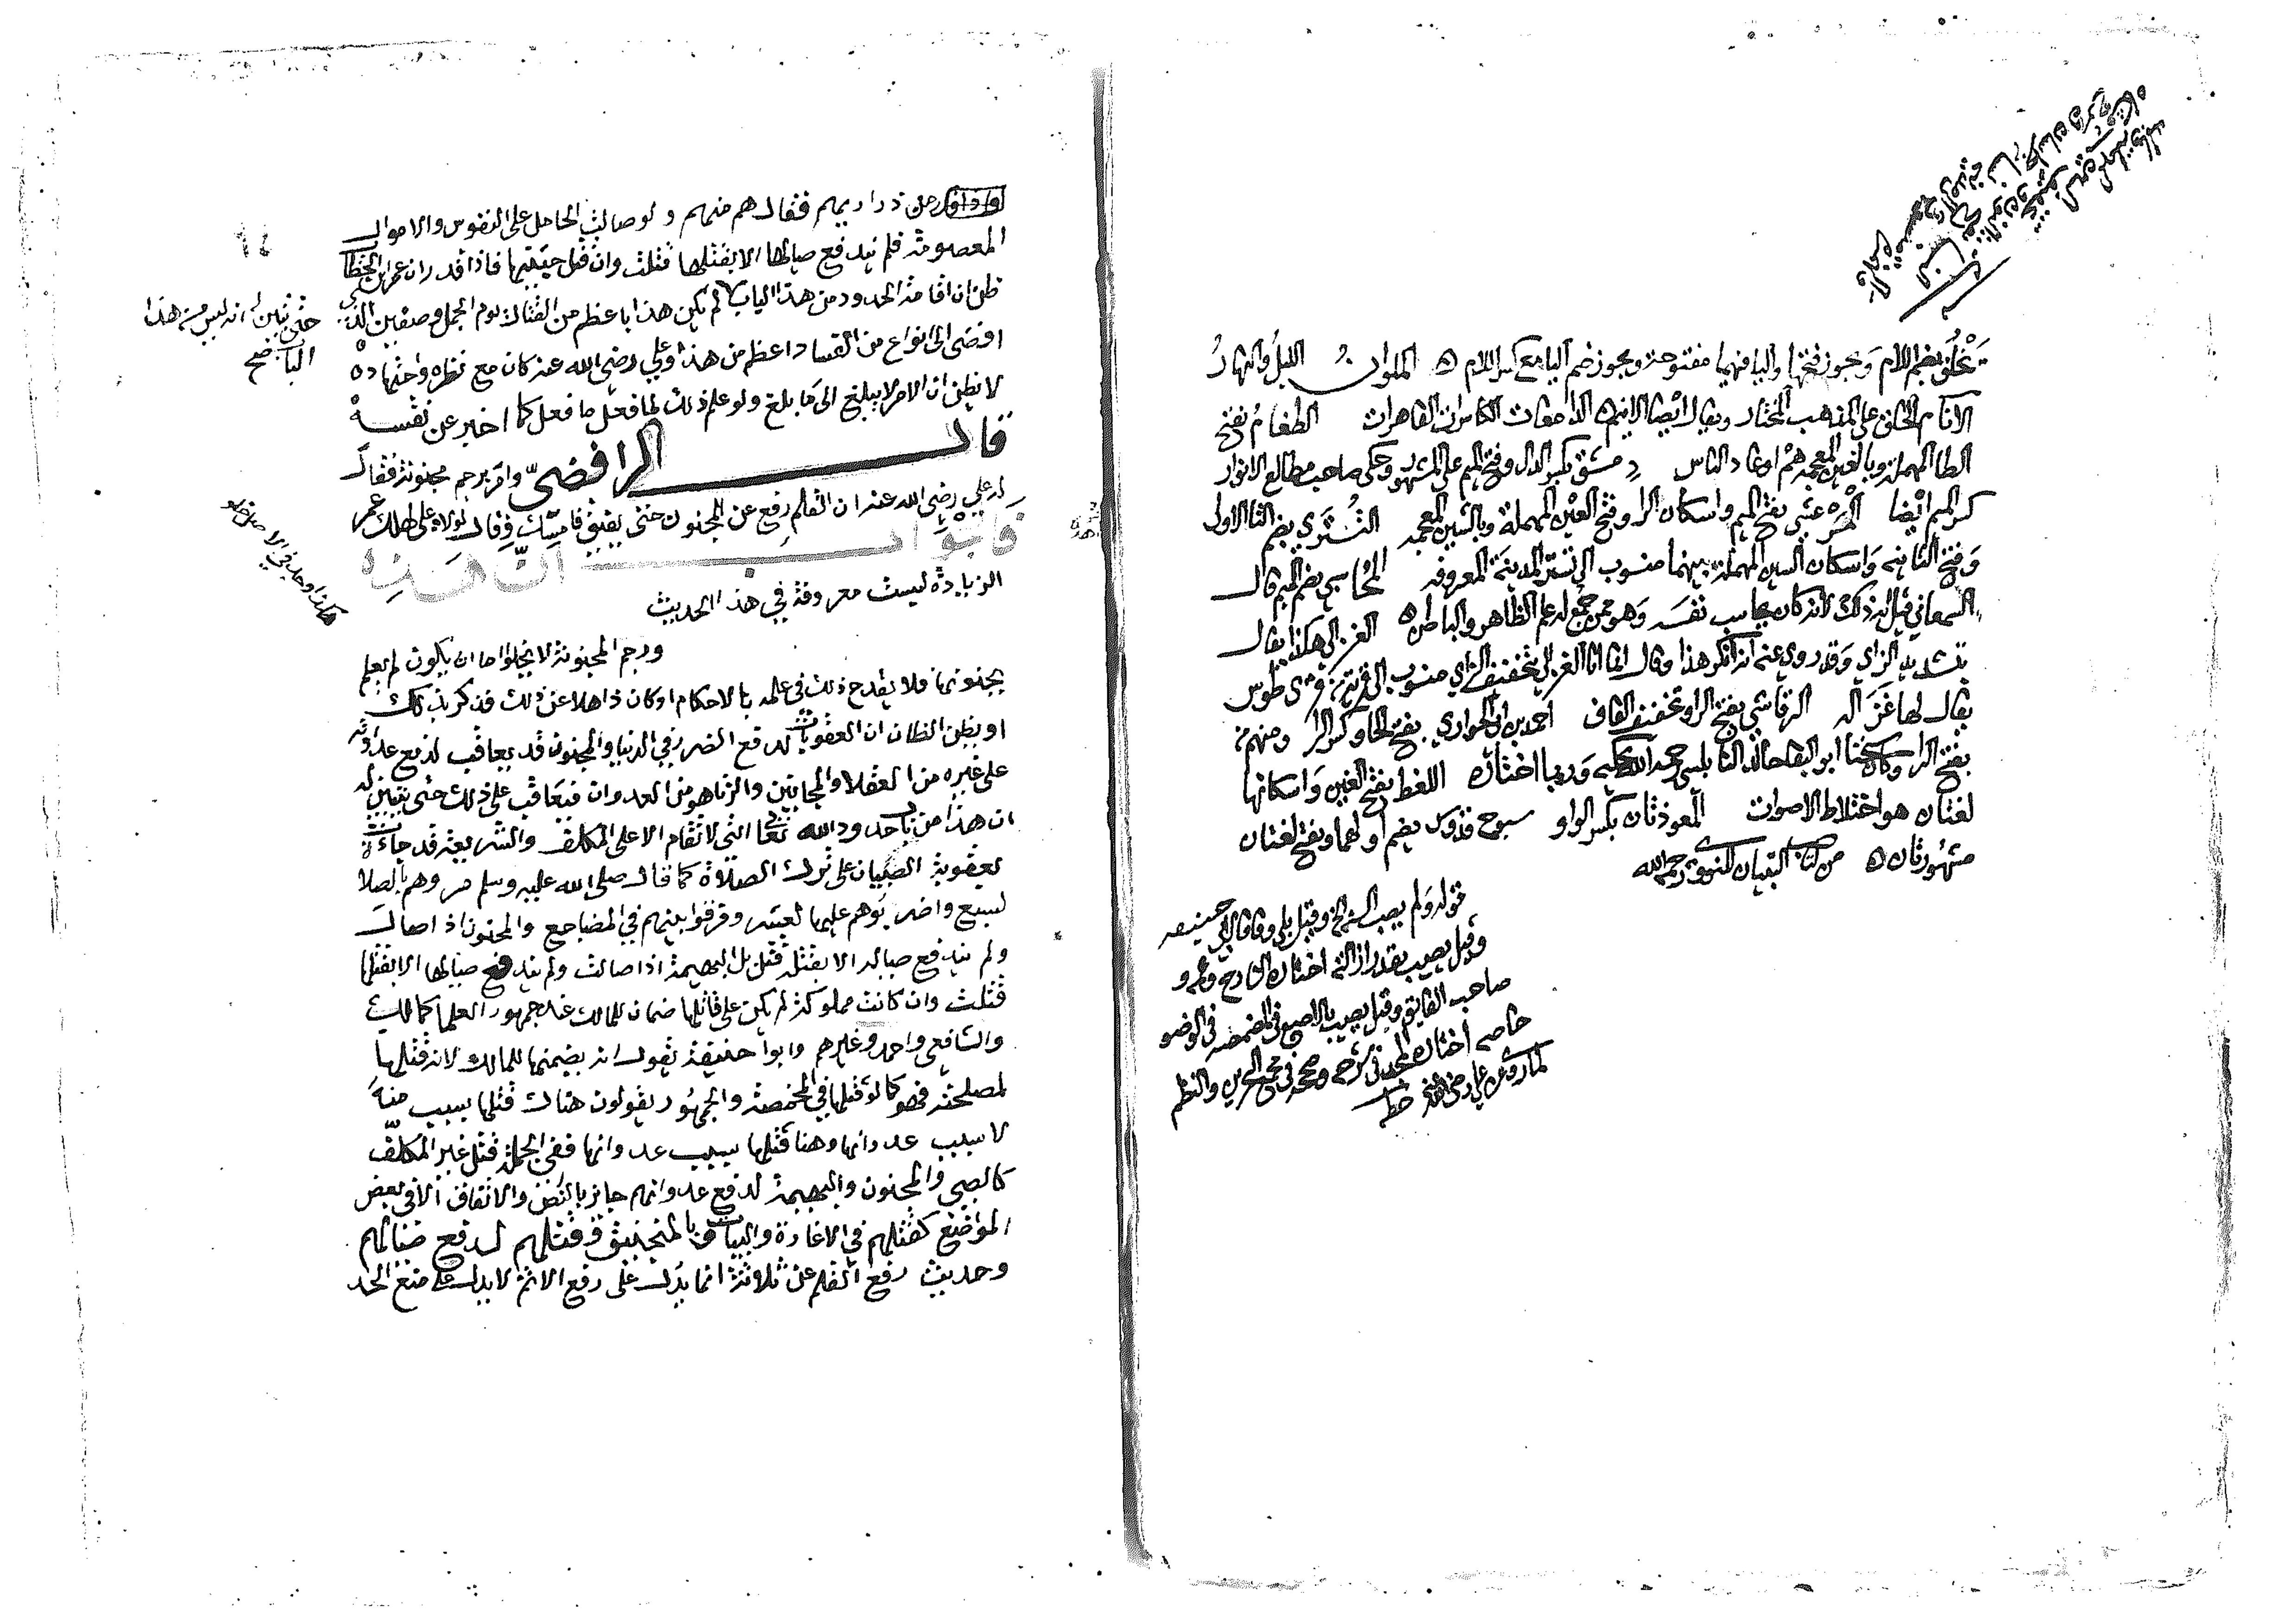 يخلق بضم اللام ويجوز فتحها واليا فيهما مفتوحة ويجوز ضم اليا مع كسر اللام ه الملوان الليل والنهار
الانام الخلق على المذهب المختار ويقال ايضا الانيم ه الدامغات الكاسرات القاهرات الطغام بفتح
الطا المهملة وبالغين المعجمة هم اوغاد الناس دمشق بكسر الدال وفتح الميم على المشهور وحكى صاحب مطالع الانوار
كسر الميم ايضا المرعشي بفتح الميم واسكان الرا وفتح العين المهملة وبالشين المعجمه التستري بضم التا الاولى
وفتح الثانيه واسكان السين المهملة بينهما منسوب الى تستر المدينة المعروفه المحاسبي بضم الميم قال
السمعاني قيل له ذلك لانه كان يحاسب نفسه وهو ممن جمع له علم الظاهر والباطن ه الغزالي هكذا يقال
بتشديد الزاي وقد روي عنه انه انكر هذا وقال انما انا الغزالي بتخفيف الزاي منسوب الى قرية من قرى طوس
يقال لها غزاله الرقاشي بفتح الرا وتخفيف القاف احمد بن ابي الحواري بفتح الحا وكسر الرا ومنهم من
بفتح الرا وكان شيخنا ابو البقا خالد النابلسي رحمة الله عليه وربما اختاره اللغط بفتح الغين واسكانها
لغتان هو اختلاط الاصوات المعوذتان بكسر الواو سبوح قدوس بضم اولهما وبفتح لغتان
مشهورتان ه من كتاب التبيان للنووي رحمه الله
قوله ولم يصب الخ وقيل بلى وفاقا لابي حنيفه
وقيل يصيب بقدر ازالته اختاره
صاحب الفايق وقيل يصيب في المضمضه في الوضو
خاصه اختاره المجد في شرحه وصححه في مجمع البحرين والنظم
لما روي عن علي رضي الله عنه
من ذراريهم فقال هم منهم ولو صالت الحامل على النفوس والاموال
المعصومة فلم يندفع صيالها الا بقتلها قتلت وان قتل جنينها فاذا قدر ان عمر ابن الخطاب
ظن ان اقامة الحدود من هذا الباب لم يكن هذا باعظم من القتال يوم الجمل وصفين الذي
افضى الى انواع من الفساد اعظم من هذا وعلي رضي الله عنه كان مع نظره واجتهاده
لا يظن ان الامر لا يبلغ الى ما بلغ ولو علم ذلك لما فعل ما فعل كما اخبر عن نفسه
قال الرافضي وامر برجم مجنونة فقال
له علي رضي الله عنه ان القلم رفع عن المجنون حتى يفيق فامسك وقال لولا علي لهلك عمر
فالجواب ان هذه
الزيادة ليست معروفة في هذا الحديث
ورجم المجنونة لا يخلوا اما ان يكون لم يعلم
بجنونها فلا يقدح ذلك في علمه بالاحكام او كان ذاهلا عن ذلك فذكر بذلك
او يظن الظان ان العقوبات لدفع الضرر في الدنيا والمجنون قد يعاقب لدفع عدوانه
على غيره من العقلا والمجانين والزنا هو من العدوان فيعاقب على ذلك حتى يتبين له
ان هذا من باب حدود الله تعالى التي لا تقام الا على المكلف والشريعة قد جاءت
لعقوبة الصبيان على ترك الصلاة كما قال صلى الله عليه وسلم مروهم بالصلاة
لسبع واضربوهم عليها لعشر وفرقوا بينهم في المضاجع والمجنون اذا صال
ولم يندفع صياله الا بقتله قتل بل البهيمة اذا صالت ولم يندفع صيالها الا بقتلها
قتلت وان كانت مملوكة لم يكن على قاتلها ضمان للمالك عند جمهور العلما كمالك
والشافعي واحمد وغيرهم وابوا حنيفة يقول انه يضمنها للمالك لانه قتلها
لمصلحته فهو كما لو قتلها في المخمصة والجمهور يقولون هناك قتلها بسبب منه
لا سبب عدوانها وهنا قتلها بسبب عدوانها ففي الجملة قتل غير المكلف
كالصبي والمجنون والبهيمة لدفع عدوانهم جايز بالنص والاتفاق الا في بعض
المواضع كقتلهم في الاغارة والبيات وبالمنجنيق وقتلهم لدفع صيالهم
وحديث رفع القلم عن ثلاثة انما يدل على رفع الاثم لا يدل على منع الحد
٩٤
حتى تبين له انه ليس من هذا
الباب صح
هكذا وجد في الاصل خلو